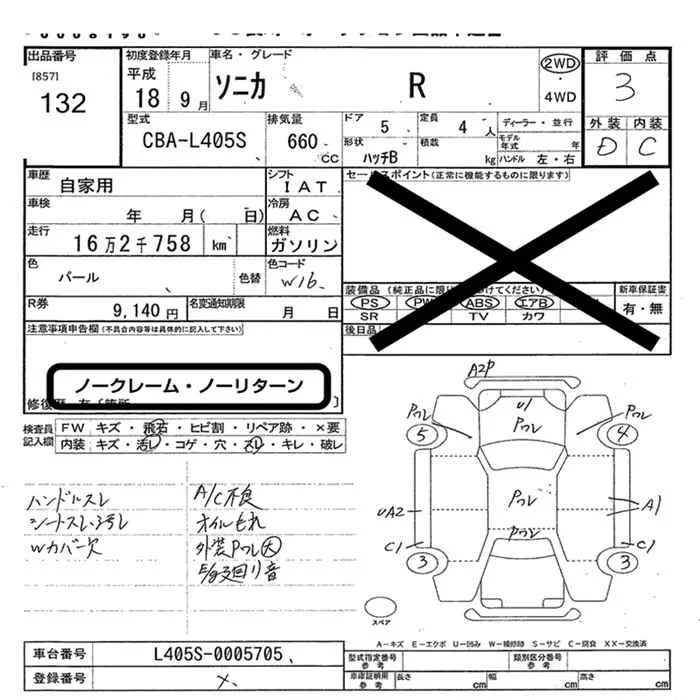 出品番号
[857]
132
初度登録年月
平成
18 9 月
車名・グレード
ソニカ R
2WD
・
4WD
評価点
3
外装 内装
D C
型式
CBA-L405S
排気量
660 cc
ドア 5
定員 4 人
ディーラー・並行
形状
ハッチB
積載 kg
モデル年式 年
ハンドル 左・右
車歴
自家用
シフト
IAT
車検
年 月( 日)
冷房
AC
走行
16万2千758 km
燃料
ガソリン
色
パール
色替
色コード
W16
R券
9,140 円
名変通知期限
月 日
セールスポイント(正常に機能するものに限ります)
装備品
PS PW ABS エアB
SR TV カワ
新車保証書
有・無
後日品
注意事項申告欄(不具合内容等は具体的に記入して下さい)
ノークレーム・ノーリターン
検査員
記入欄
FW キズ・飛石・ヒビ割・リペア跡・×要
内装 キズ・汚レ・コゲ・穴・スレ・キレ・破レ
ハンドルスレ
A/C不良
オイルもれ
Wカバー欠
外装Pワレ大
A2P
U1
Pワレ
Pワレ
Pワレ
5
4
Pワレ
UA2
A1
Pワレ
C1
C1
3
3
スペア
A-キズ E-エクボ U-凹み W-補修跡 S-サビ C-腐食 XX-交換済
車台番号
L405S-0005705
登録番号
×
型式指定番号
参考
類別区分番号
参考
車庫証明用
参考
長さ cm
幅 cm
高さ cm